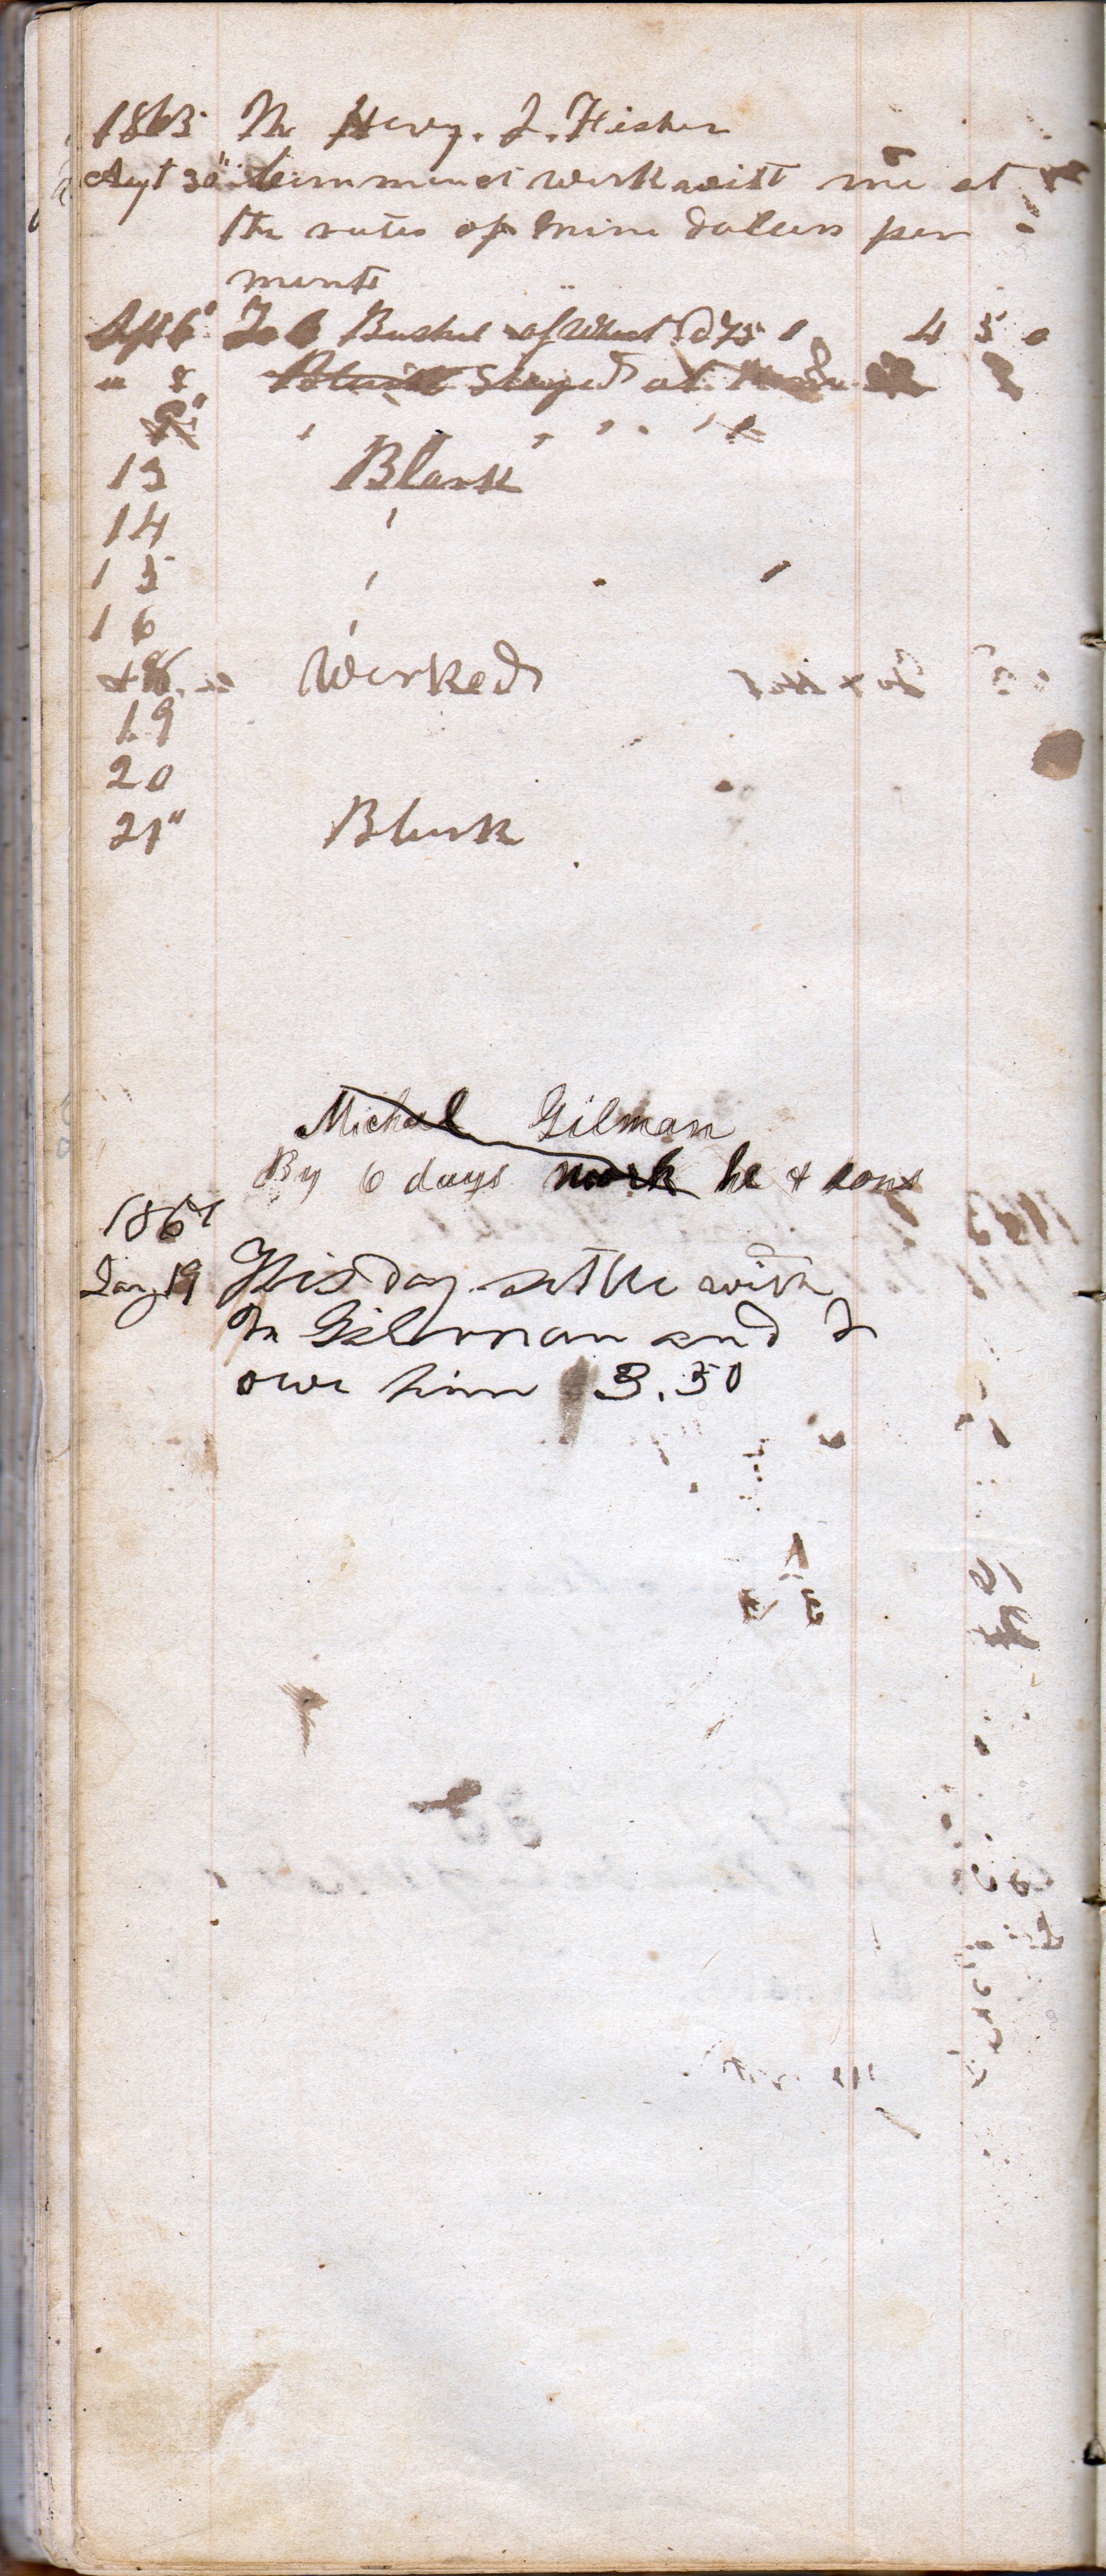 1863 Mr Henry. J. Fisher
Agt 30" Commencet work wist me at
the rates of nine dollers per
month
Spt 6" To 6 Bushel of Wheat @ 75 4 50
" 8
9"
13 Blank
14 '
15 '
16 '
18 Worked
19
20
21" Blank
Michael Gilman
By 6 days work he & sons
1864
Jany 19 This day settle with
Mr Gilman and I
owe him 3.50